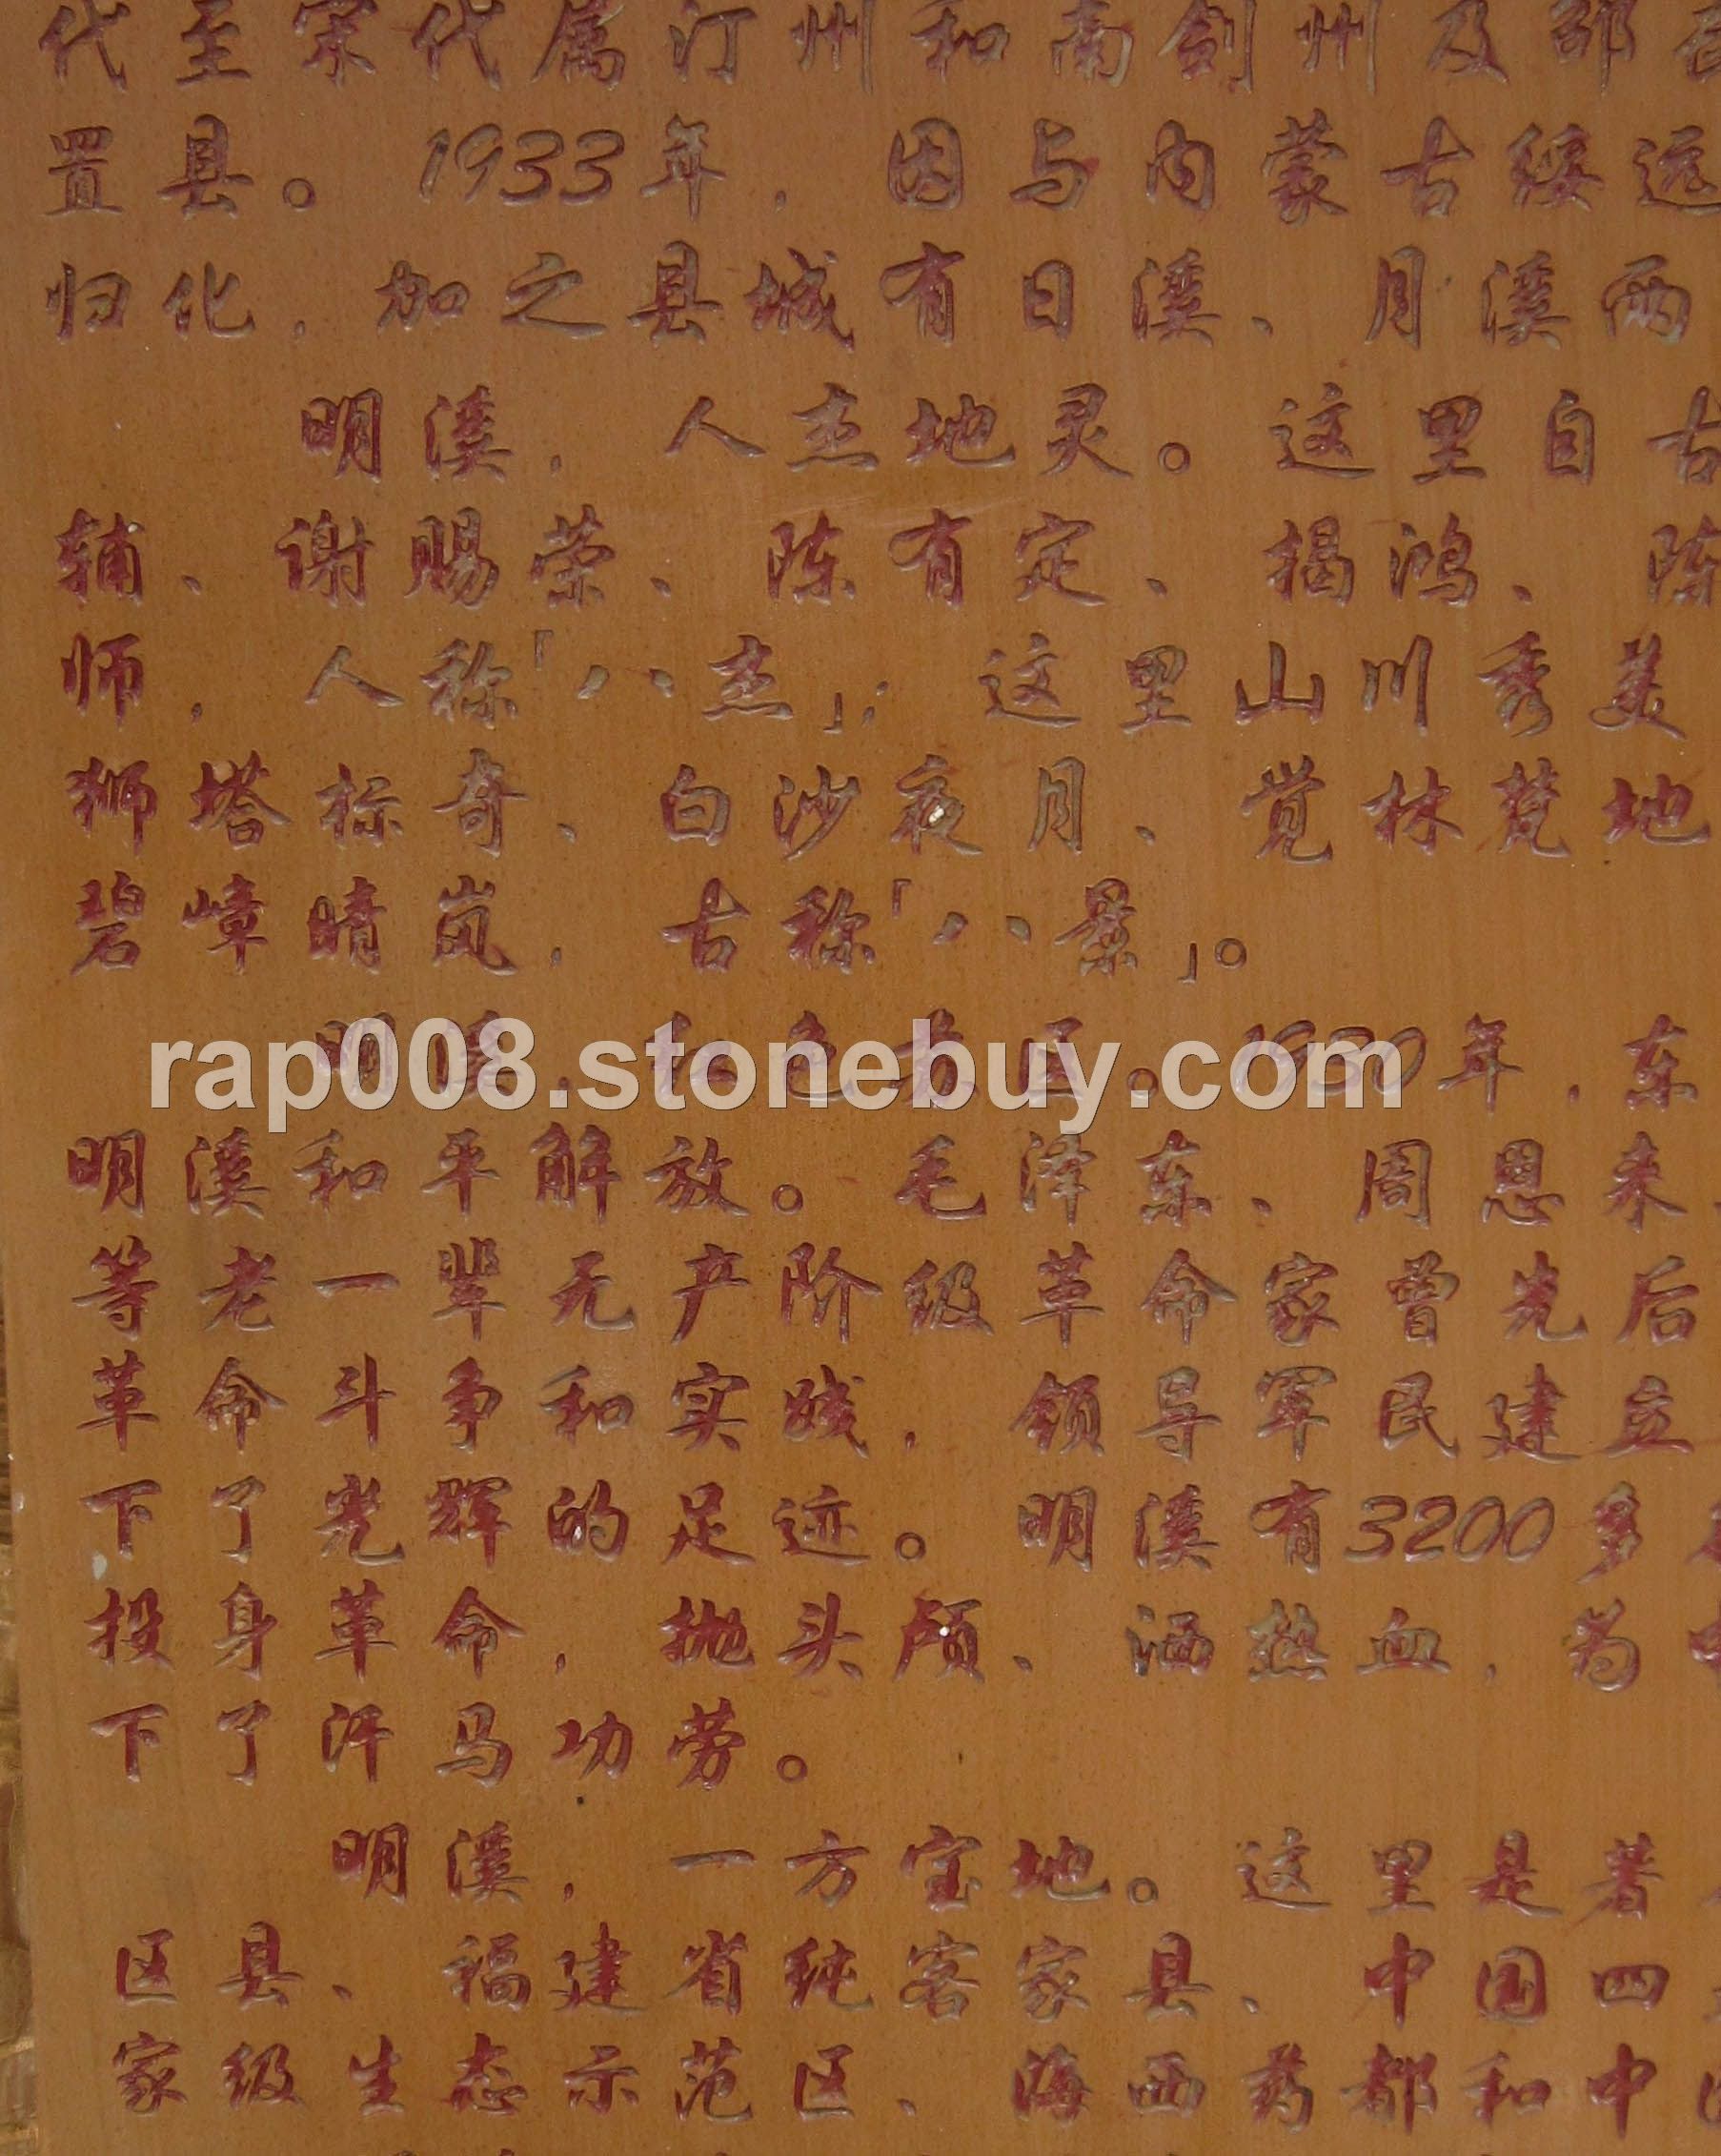 代至宋代属汀州和南剑州及邵武
置县。1933年，因与内蒙古绥远
归化，加之县城有日溪、月溪两
明溪，人杰地灵。这里自古
辅、谢赐荣、陈有定、揭鸿、陈
师，人称「八杰」；这里山川秀美
狮塔标奇、白沙夜月、觉林梵地
碧嶂晴岚，古称「八景」。
明溪，红色苏区。1930年，东
rap008.stonebuy.com
明溪和平解放。毛泽东、周恩来、
等老一辈无产阶级革命家曾先后
革命斗争和实践，领导军民建立
下了光辉的足迹。明溪有3200多
投身革命，抛头颅、洒热血，为中
下了汗马功劳。
明溪，一方宝地。这里是著
区县、福建省纯客家县、中国四
家级生态示范区、海西药都和中国